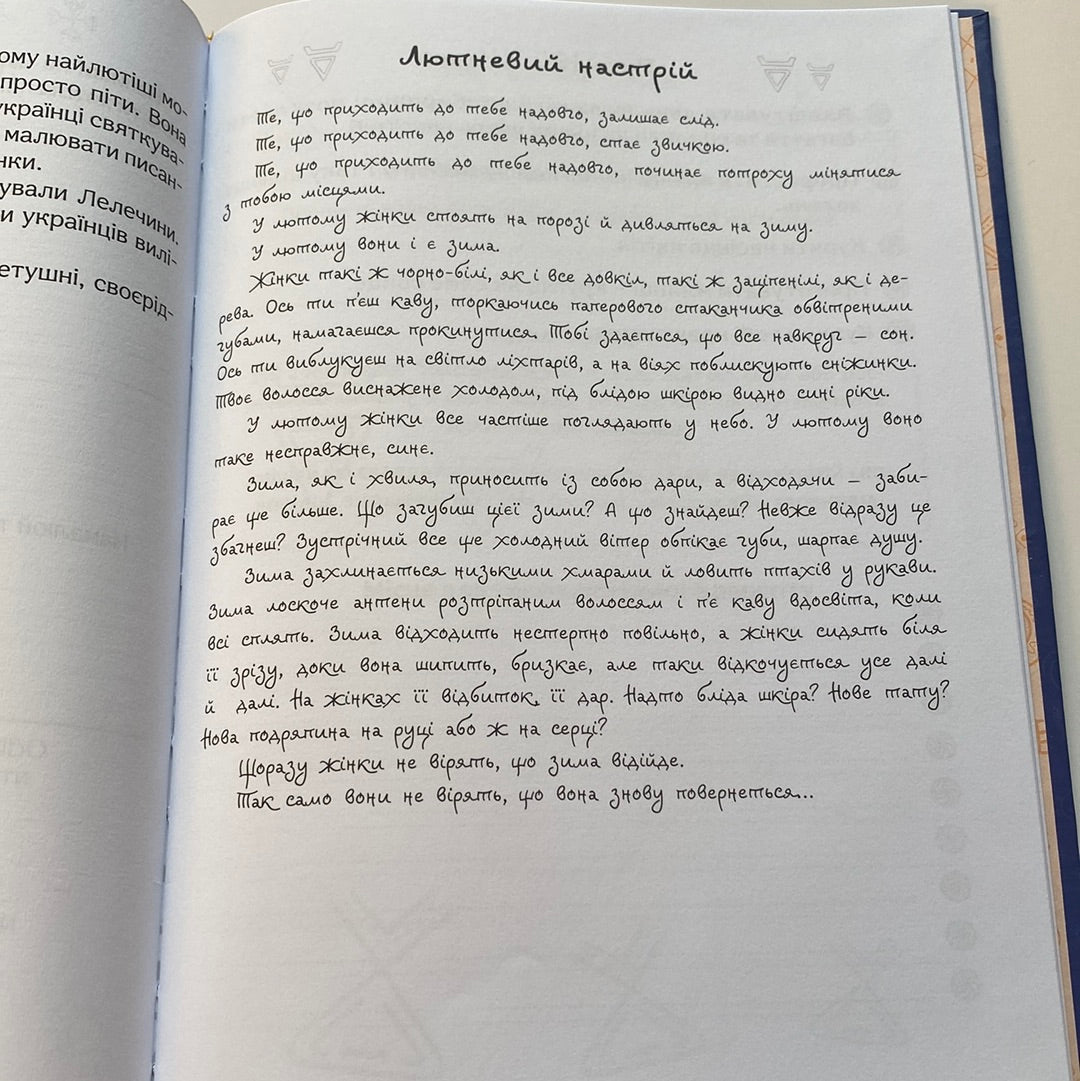 ому найлютіші мо-
просто піти. Вона
українці святкува-
малювати писан-
нки.
ували Лелечини.
и українців вилі-
етушні, своєрід-
Лютневий настрій
Те, що приходить до тебе надовго, залишає слід.
Те, що приходить до тебе надовго, стає звичкою.
Те, що приходить до тебе надовго, починає потроху мінятися
з тобою місцями.
У лютому жінки стоять на порозі й дивляться на зиму.
У лютому вони і є зима.
Жінки такі ж чорно-білі, як і все довкіл, такі ж заціпенілі, як і де-
рева. Ось ти п'єш каву, торкаючись паперового стаканчика обвітреними
губами, намагаєшся прокинутися. Тобі здається, що все навкруг – сон.
Ось ти виблукуєш на світло ліхтарів, а на віях поблискують сніжинки.
Твоє волосся виснажене холодом, під блідою шкірою видно сині ріки.
У лютому жінки все частіше поглядають у небо. У лютому воно
таке несправжнє, синє.
Зима, як і хвиля, приносить із собою дари, а відходячи – заби-
рає ще більше. Що загубиш цієї зими? А що знайдеш? Невже відразу це
збагнеш? Зустрічний все ще холодний вітер обпікає губи, шарпає душу.
Зима захлинається низькими хмарами й ловить птахів у рукави.
Зима лоскоче антени розтріпаним волоссям і п'є каву вдосвіта, коли
всі сплять. Зима відходить нестерпно повільно, а жінки сидять біля
її зрізу, доки вона шипить, бризкає, але таки відкочується усе далі
й далі. На жінках її відбиток, її дар. Надто бліда шкіра? Нове тату?
Нова подряпина на руці або ж на серці?
Щоразу жінки не вірять, що зима відійде.
Так само вони не вірять, що вона знову повернеться...